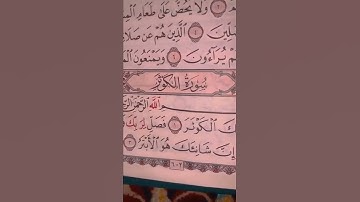 وَلَا يَحُضُّ عَلَىٰ طَعَامِ
ـلِّينَ ٤ ٱلَّذِينَ هُمْ عَن صَلَا
ـمْ يُرَآءُونَ ٦ وَيَمْنَعُونَ ٱلْمَـ
سُورَةُ الكَوْثَرِ
ٱللَّهِ ٱلرَّحْمَٰنِ
ـكَ ٱلْكَوْثَرَ ١ فَصَلِّ لِرَبِّكَ
إِنَّ شَانِئَكَ هُوَ ٱلْأَبْتَرُ ٣
٦٠٢